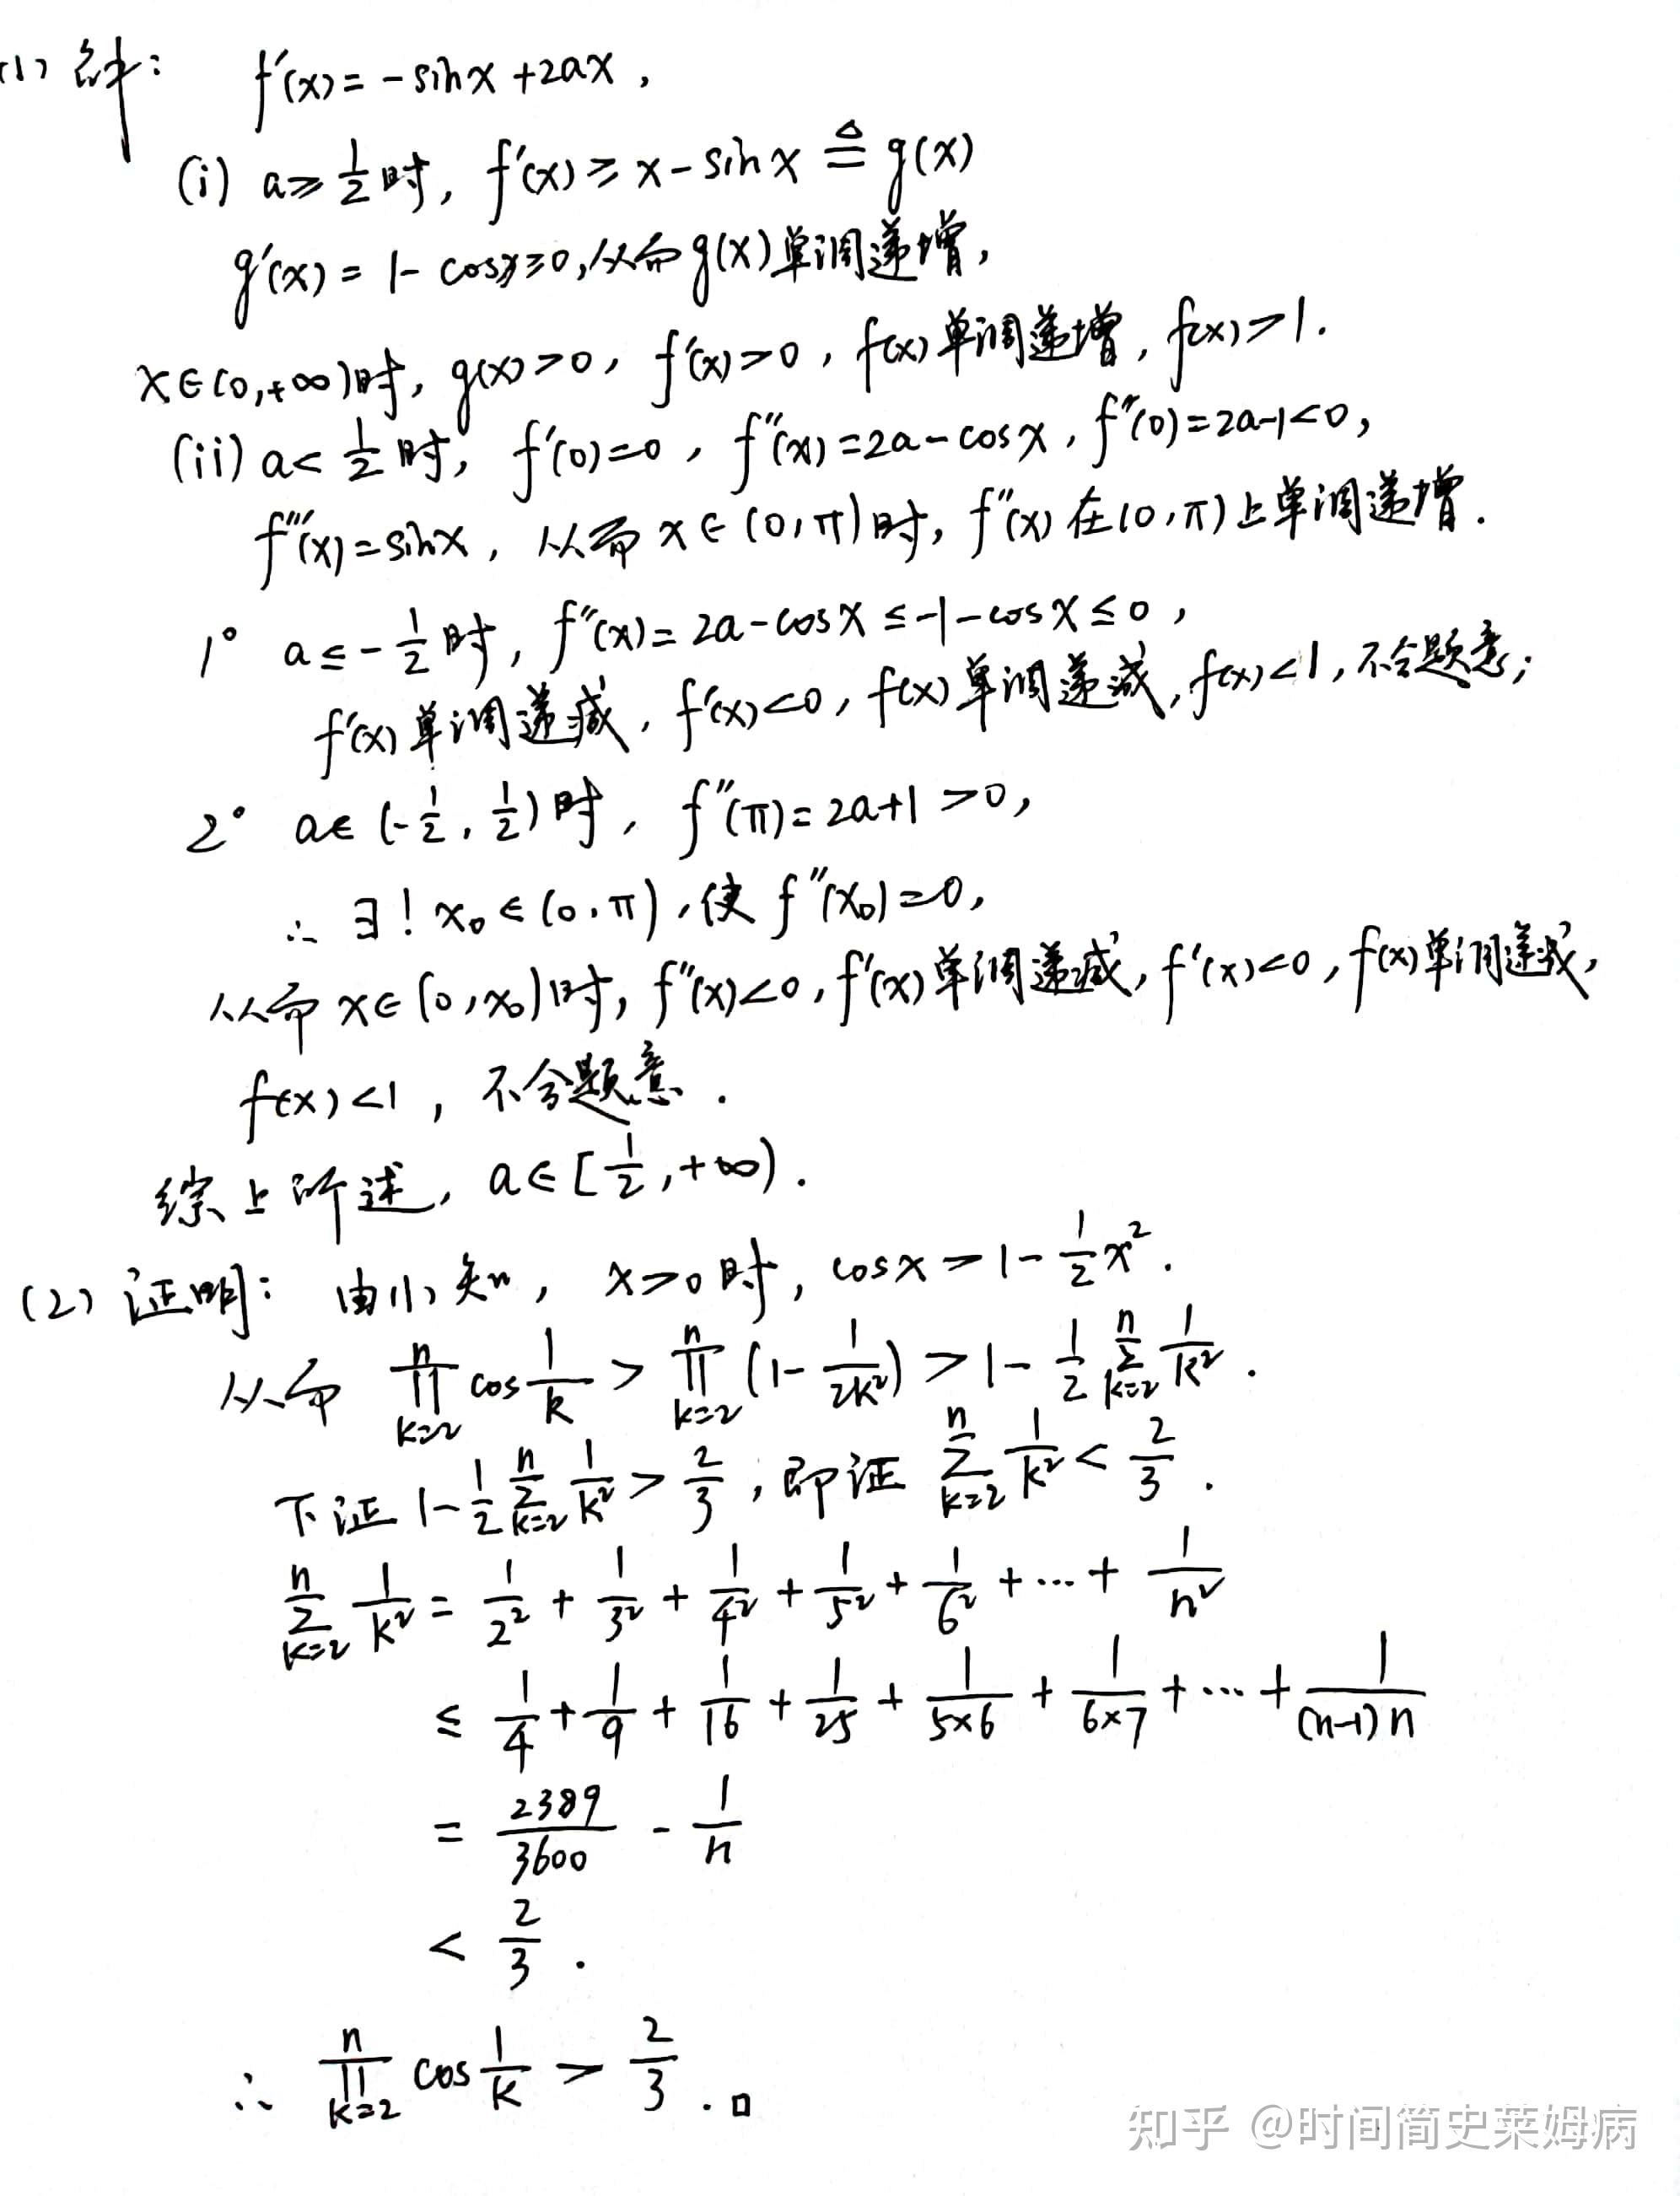 (1) 解： f'(x)=-sinx+2ax，
(i) a≥1/2时，f'(x)≥x-sinx≜g(x)
g'(x)=1-cosx≥0,从而g(x)单调递增，
x∈(0,+∞)时，g(x)>0，f'(x)>0，f(x)单调递增，f(x)>1.
(ii) a<1/2时，f'(0)=0，f''(x)=2a-cosx，f''(0)=2a-1<0，
f'''(x)=sinx，从而x∈(0,π)时，f''(x)在(0,π)上单调递增.
1° a≤-1/2时，f''(x)=2a-cosx≤-1-cosx≤0，
f'(x)单调递减，f'(x)<0，f(x)单调递减，f(x)<1，不合题意；
2° a∈(-1/2,1/2)时，f''(π)=2a+1>0，
∴ ∃! x₀∈(0,π)，使f''(x₀)=0，
从而x∈(0,x₀)时，f''(x)<0，f'(x)单调递减，f'(x)<0，f(x)单调递减，
f(x)<1，不合题意.
综上所述，a∈[1/2,+∞).
(2) 证明：由(1)知，x>0时，cosx>1-1/2x².
从而 ∏_{k=2}^{n} cos1/k > ∏_{k=2}^{n} (1-1/2k²) > 1-1/2 ∑_{k=2}^{n} 1/k².
下证 1-1/2 ∑_{k=2}^{n} 1/k² > 2/3，即证 ∑_{k=2}^{n} 1/k² < 2/3.
∑_{k=2}^{n} 1/k² = 1/2² + 1/3² + 1/4² + 1/5² + 1/6² + ⋯ + 1/n²
≤ 1/4 + 1/9 + 1/16 + 1/25 + 1/5×6 + 1/6×7 + ⋯ + 1/(n-1)n
= 2389/3600 - 1/n
< 2/3.
∴ ∏_{k=2}^{n} cos1/k > 2/3. □
知乎 @时间简史莱姆病